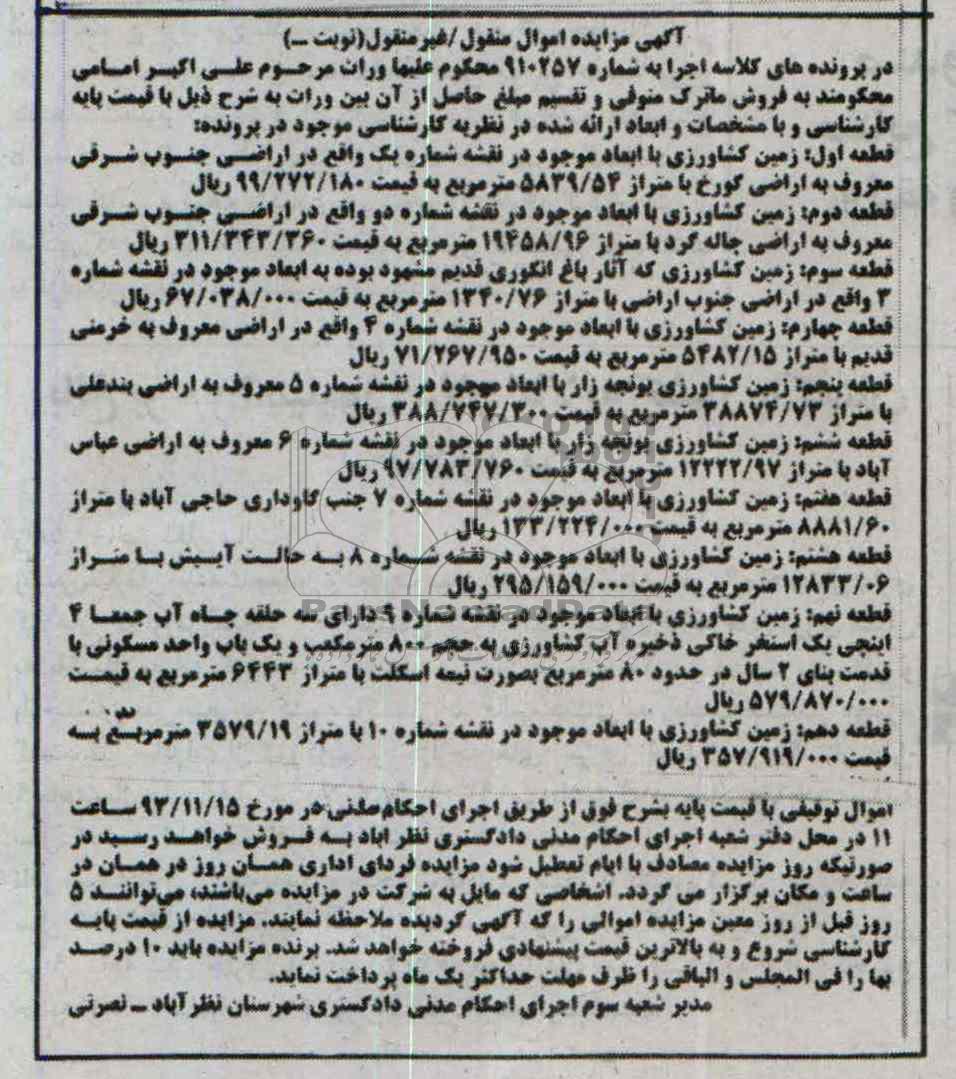 آگهی مزایده اموال منقول/غیرمنقول(نوبت ــ)
در پرونده های کلاسه اجرا به شماره ۹۱۰۲۵۷ محکوم علیها وراث مرحوم علی اکبر امامی
محکومند به فروش ماترک متوفی و تقسیم مبلغ حاصل از آن بین وراث به شرح ذیل با قیمت پایه
کارشناسی و با مشخصات و ابعاد ارائه شده در نظریه کارشناسی موجود در پرونده:
قطعه اول: زمین کشاورزی با ابعاد موجود در نقشه شماره یک واقع در اراضی جنوب شرقی
معروف به اراضی کورخ با متراژ ۵۸۳۹/۵۴ مترمربع به قیمت ۹۹/۲۷۲/۱۸۰ ریال
قطعه دوم: زمین کشاورزی با ابعاد موجود در نقشه شماره دو واقع در اراضی جنوب شرقی
معروف به اراضی چاله گرد با متراژ ۱۹۴۵۸/۹۶ مترمربع به قیمت ۳۱۱/۳۴۳/۳۶۰ ریال
قطعه سوم: زمین کشاورزی که آثار باغ انگوری قدیم مشهود بوده به ابعاد موجود در نقشه شماره
۳ واقع در اراضی جنوب اراضی با متراژ ۱۳۴۰/۷۶ مترمربع به قیمت ۶۷/۰۳۸/۰۰۰ ریال
قطعه چهارم: زمین کشاورزی با ابعاد موجود در نقشه شماره ۴ واقع در اراضی معروف به خرمنی
قدیم با متراژ ۵۴۸۲/۱۵ مترمربع به قیمت ۷۱/۲۶۷/۹۵۰ ریال
قطعه پنجم: زمین کشاورزی یونجه زار با ابعاد موجود در نقشه شماره ۵ معروف به اراضی بندعلی
با متراژ ۳۸۸۷۴/۷۳ مترمربع به قیمت ۳۸۸/۷۴۷/۳۰۰ ریال
قطعه ششم: زمین کشاورزی یونجه زار با ابعاد موجود در نقشه شماره ۶ معروف به اراضی عباس
آباد با متراژ ۱۲۲۲۲/۹۷ مترمربع به قیمت ۹۷/۷۸۳/۷۶۰ ریال
قطعه هفتم: زمین کشاورزی با ابعاد موجود در نقشه شماره ۷ جنب گاوداری حاجی آباد با متراژ
۸۸۸۱/۶۰ مترمربع به قیمت ۱۳۳/۲۲۴/۰۰۰ ریال
قطعه هشتم: زمین کشاورزی با ابعاد موجود در نقشه شماره ۸ به حالت آیش با متراژ
۱۲۸۳۳/۰۶ مترمربع به قیمت ۲۹۵/۱۵۹/۰۰۰ ریال
قطعه نهم: زمین کشاورزی با ابعاد موجود در نقشه شماره ۹ دارای سه حلقه چاه آب جمعا ۴
اینچی یک استخر خاکی ذخیره آب کشاورزی به حجم ۸۰۰ مترمکعب و یک باب واحد مسکونی با
قدمت بنای ۲ سال در حدود ۸۰ مترمربع بصورت نیمه اسکلت با متراژ ۶۴۴۳ مترمربع به قیمت
۵۷۹/۸۷۰/۰۰۰ ریال
قطعه دهم: زمین کشاورزی با ابعاد موجود در نقشه شماره ۱۰ با متراژ ۳۵۷۹/۱۹ مترمربع به
قیمت ۳۵۷/۹۱۹/۰۰۰ ریال
اموال توقیفی با قیمت پایه بشرح فوق از طریق اجرای احکام مدنی در مورخ ۹۳/۱۱/۱۵ ساعت
۱۱ در محل دفتر شعبه اجرای احکام مدنی دادگستری نظر اباد به فروش خواهد رسید در
صورتیکه روز مزایده مصادف با ایام تعطیل شود مزایده فردای اداری همان روز در همان در
ساعت و مکان برگزار می گردد. اشخاصی که مایل به شرکت در مزایده می‌باشند، می‌توانند ۵
روز قبل از روز معین مزایده اموالی را که آگهی گردیده ملاحظه نمایند. مزایده از قیمت پایه
کارشناسی شروع و به بالاترین قیمت پیشنهادی فروخته خواهد شد. برنده مزایده باید ۱۰ درصد
بها را فی المجلس و الباقی را ظرف مهلت حداکثر یک ماه پرداخت نماید.
مدیر شعبه سوم اجرای احکام مدنی دادگستری شهرستان نظرآباد ــ نصرتی